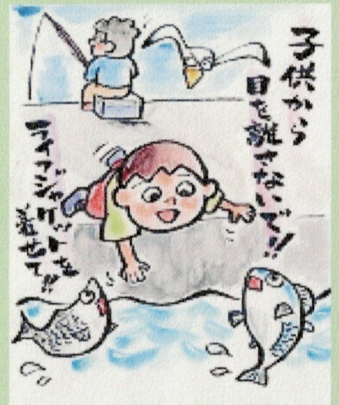 子供から
目を離さないで!!
ライフジャケットを
着せて!!